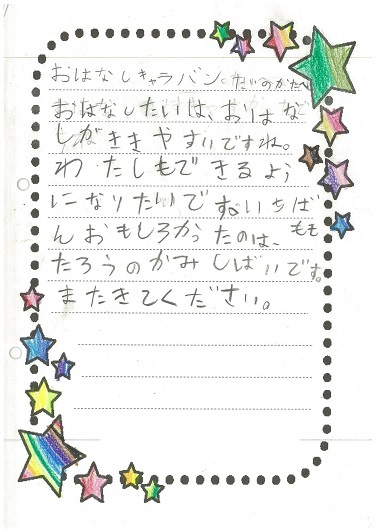 おはなしキャラバンたいのかたへ
おはなしたいは、おはな
しがききやすいですね。
わたしもできるよう
になりたいですいちば
んおもしろかったのは、もも
たろうのかみしばいです。
またきてください。